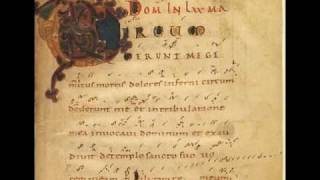 DOM IN LXX MA
CIRCUM
DERUNT ME GE
mitus mortis dolores inferni circum
dederunt me et in tribulatione
mea inuocaui dominum et exau
diuit de templo sancto suo uo
cem meam